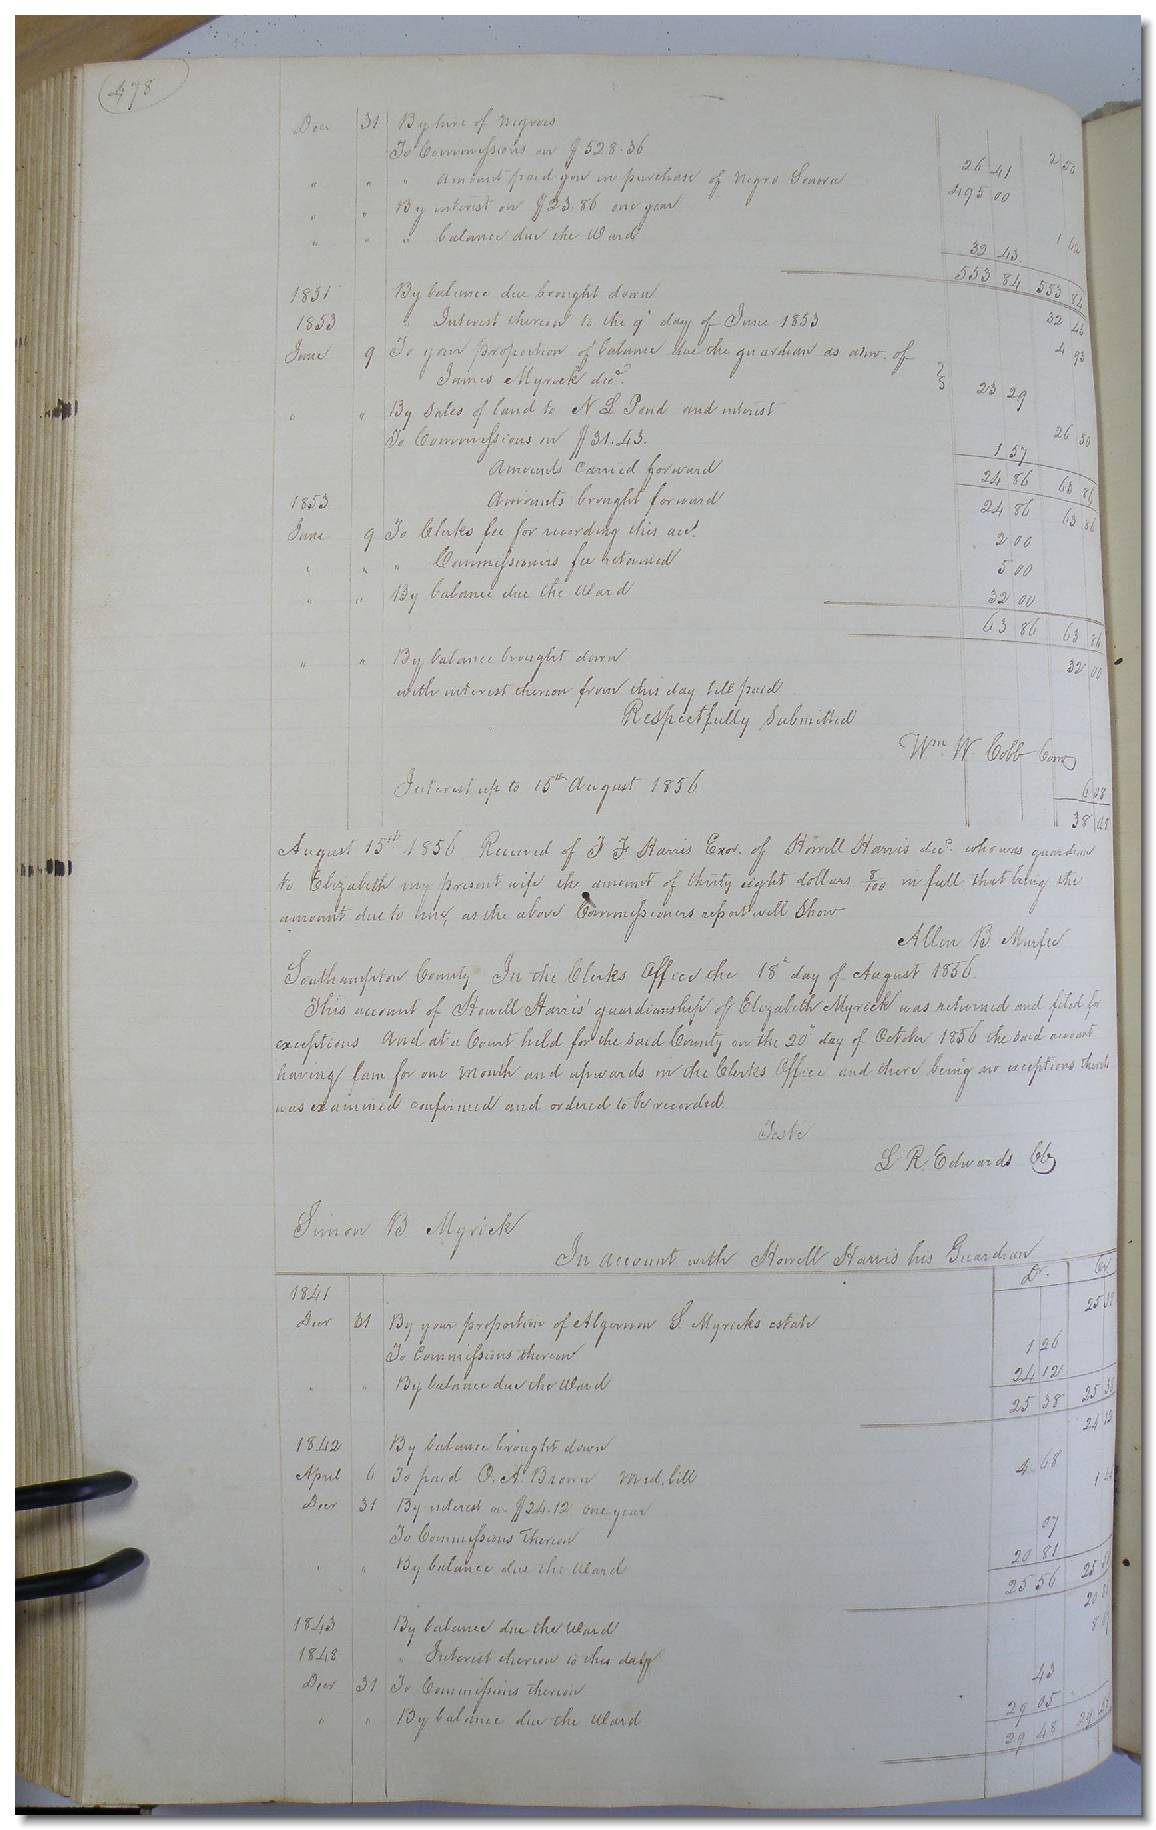 478
Decr 31 By hire of Negroes 2 50
To Commissions on $528.36 26 41
" " " Amount paid you in purchase of Negro Sonora 495 00
" " By interest on $23.86 one year 1
" " " balance due the Ward 32 43
553 84 553 84
1851 By balance due brought down 32 43
1853 " Interest thereon to the 9th day of June 1853 4 93
June 9 To your proportion of balance due the guardian as adm. of
James Myrick decd. 23 29
" " By Sales of land to N L Pond and interest 26 50
To Commissions on $31.43. 1 57
Amounts carried forward 24 86 63 86
1853 Amounts brought forward 24 86 63 86
June 9 To Clerks fee for recording this acct. 2 00
" " " Commissioners fee returned 5 00
" " By balance due the Ward 32 00
63 86 63 86
" " By balance brought down 32 00
with interest thereon from this day till paid
Respectfully Submitted
Wm W Cobb Com
Interest up to 15th August 1856 6 08
38 08
August 15th 1856 Received of J F Harris Exor. of Howell Harris decd. who was guardian
to Elizabeth my present wife the amount of thirty eight dollars 8/100 in full that being the
amount due to me, as the above Commissioners report will Show
Allen B. Murfee
Southampton County In the Clerks Office the 18th day of August 1856.
This account of Howell Harris' guardianship of Elizabeth Myrick was returned and filed for
exceptions And at a Court held for the said County on the 20th day of October 1856 the said account
having lain for one month and upwards in the Clerks Office and there being no exceptions thereto
was examined confirmed and ordered to be recorded.
Teste
L R. Edwards Cc
Simon B Myrick
In account with Howell Harris his Guardian
Dr. Cr.
1841
Decr 31 By your proportion of Algernon S. Myricks estate 25 38
To Commissions thereon 1 26
" " By balance due the Ward 24 12
25 38 25 38
1842 By balance brought down 24 12
April 6 To paid O. A. Brown Med. bill 4 68
Decr 31 By interest on $24.12 one year 1 44
To Commissions thereon 07
" " By balance due the Ward 20 81
25 56 25 56
1843 By balance due the Ward 20 81
1848 " Interest thereon to this day 8 67
Decr 31 To Commissions thereon 43
" " By balance due the Ward 29 05
29 48 29 48